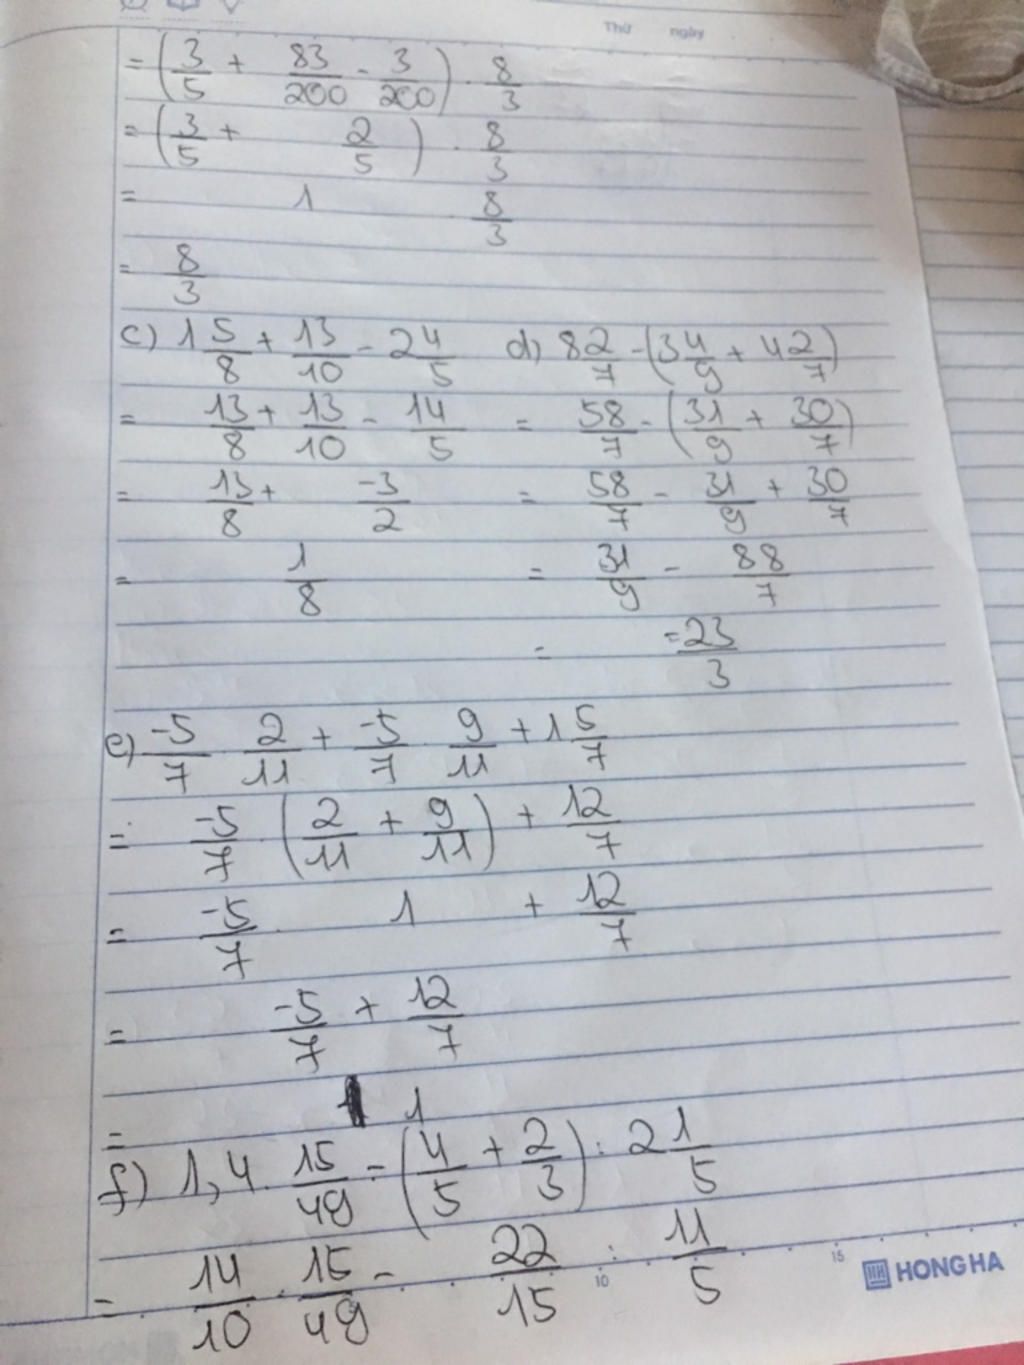 Thứ ngày
= (3/5 + 83/200 - 3/200) . 8/3
= (3/5 + 2/5) . 8/3
= 1 8/3
= 8/3
c) 1 5/8 + 13/10 - 2 4/5 d) 8 2/7 - (3 4/9 + 4 2/7)
= 13/8 + 13/10 - 14/5 = 58/7 - (31/9 + 30/7)
= 13/8 + -3/2 = 58/7 - 31/9 + 30/7
= 1/8 = 31/9 - 88/7
= -23/3
e) -5/7 . 2/11 + -5/7 . 9/11 + 1 5/7
= -5/7 . (2/11 + 9/11) + 12/7
= -5/7 . 1 + 12/7
= -5/7 + 12/7
= 1
f) 1,4 . 15/49 - (4/5 + 2/3) : 2 1/5
= 14/10 . 15/49 - 22/15 : 11/5
10 15 HONG HA